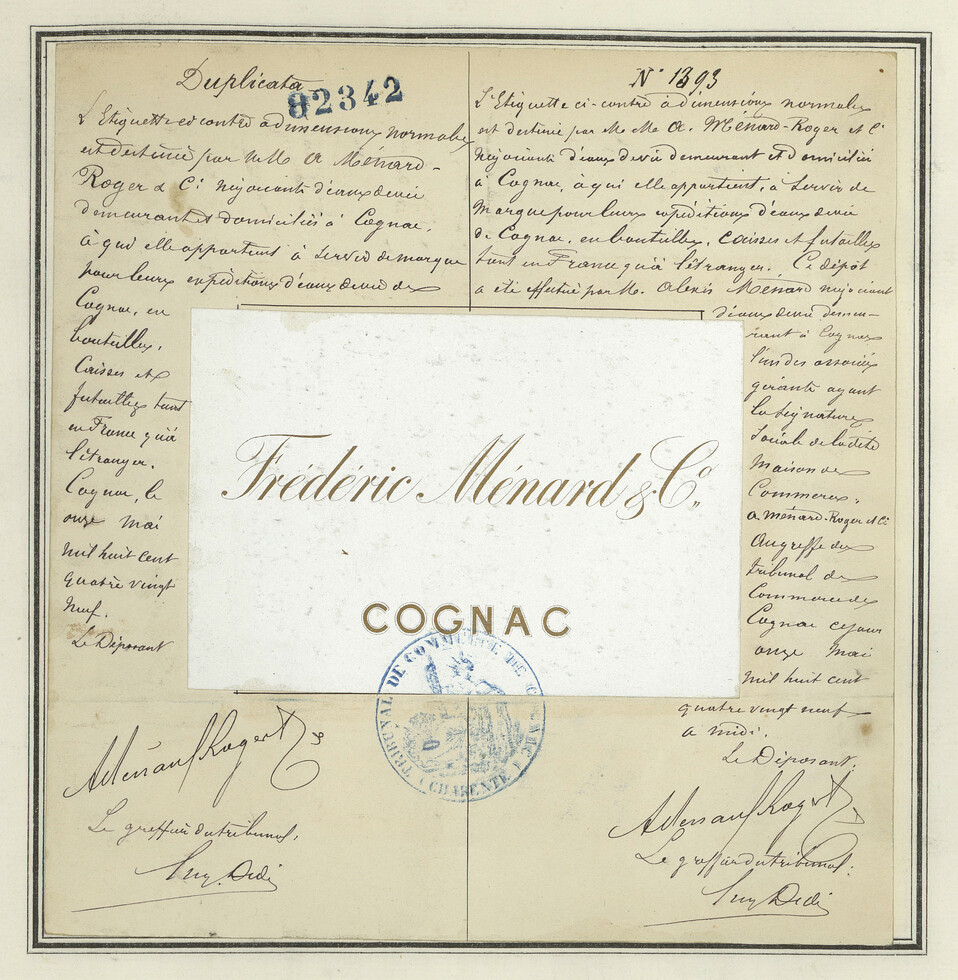 Duplicata
82342
L'Etiquette ci contre à dimensions normales
est destinée par M.M. A. Ménard-
Roger & Cie négociants d'eaux de vie
demeurant et domiciliés à Cognac,
à qui elle appartient à servir de marque
pour leurs expéditions d'eaux de vie de
Cognac, en
bouteilles,
Caisses et
futailles tant
en France qu'à
l'étranger.
Cognac, le
onze Mai
mil huit cent
quatre vingt
neuf.
Le Déposant
AMénard Roger &
Le greffier du tribunal,
N° 1393
L'Etiquette ci-contre à dimensions normales
est destinée par M.M. A. Ménard-Roger et Cie
négociants d'eaux de vie demeurant et domiciliés
à Cognac, à qui elle appartient, à servir de
Marque pour leurs expéditions d'eaux de vie
de Cognac, en bouteilles, caisses et futailles
tant en France qu'à l'étranger. Ce dépôt
a été effectué par M. Alexis Ménard négociant
d'eaux de vie demeu-
rant à Cognac
l'un des associés
gérants ayant
la signature
sociale de la dite
Maison de
Commerce,
A Ménard-Roger et Cie
Au greffe du
tribunal de
Commerce de
Cognac ce jour
onze Mai
mil huit cent
quatre vingt neuf
à midi.
Le Déposant.
AMénard Roger &
Le greffier du tribunal:
Frédéric Ménard & Co.
COGNAC
TRIBUNAL DE COMMERCE DE COGNAC
(CHARENTE)